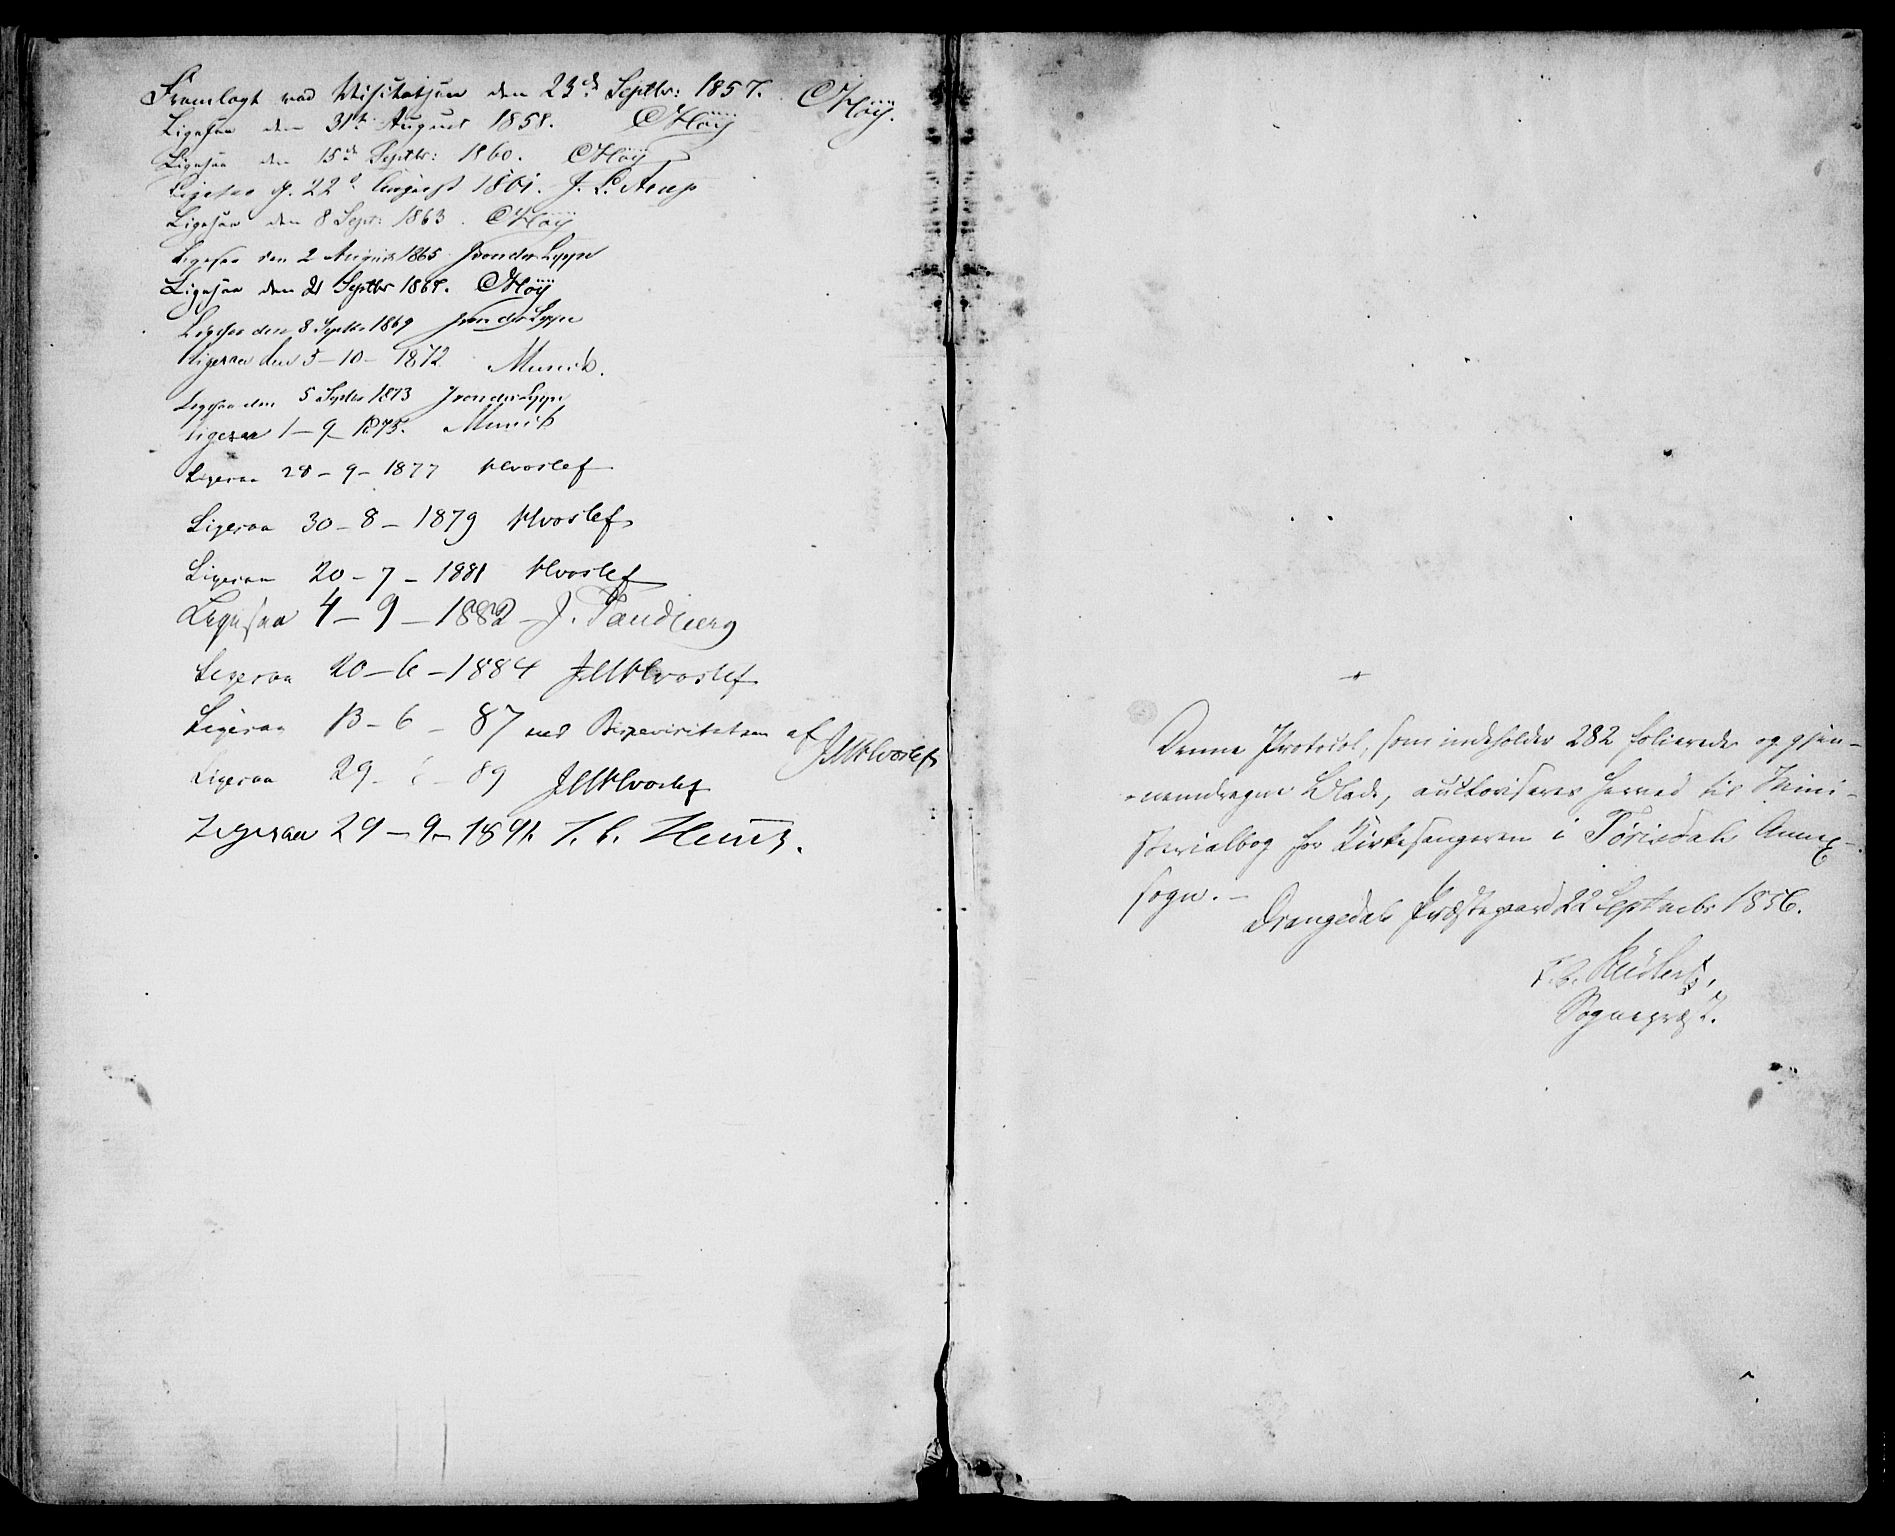 Fremlagt ved Visitatsen den 23de Septbr: 1857. CHöy.
Ligesaa den 31te August 1858. CHöy
Ligesaa den 15de Septbr: 1860. CHöy
Ligesaa d. 22d August 1861. J. L. Arup
Ligesaa den 8 Sept: 1863. CHöy
Ligesaa den 2 August 1865 J von der Lippe
Ligesaa den 21 Septbr 1867. CHöy
Ligesaa den 8 Septbr 1869 J von der Lippe
Ligesaa den 5-10-1872 Munch.
Ligesaa den 5 Septbr 1873 J von der Lippe
Ligesaa 1-9-1875. Munch
Ligesaa 28-9-1877 Hvoslef
Ligesaa 30-8-1879 Hvoslef
Ligesaa 20-7-1881 Hvoslef
Ligesaa 4-9-1882 - J. Tandberg
Ligesaa 20-6-1884 JNHvoslef
Ligesaa 13-6-87 ved Bispevisitatsen af JNHvoslef
Ligesaa 29- -89 JNHvoslef
Ligesaa 29-9-1891. J. C. Heuch.
Denne Protocol, som indeholder 282 folierede og gjen-
nemdragne Blade, auctoriseres herved til Mini-
sterialbog for Kirkesangeren i Tørisdals Annex-
sogn. -
Drangedals Præstegaard 22 Septembr 1856.
Sognepræst.